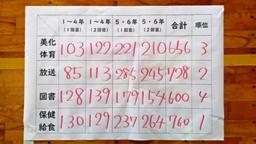 1～4年 (1回目) 1～4年 (2回目) 5・6年 (1回目) 5・6年 (2回目) 合計 順位
美化 体育 103 122 221 210 656 3
放送 85 113 285 245 728 2
図書 128 139 179 154 600 4
保健 給食 130 129 237 264 760 1